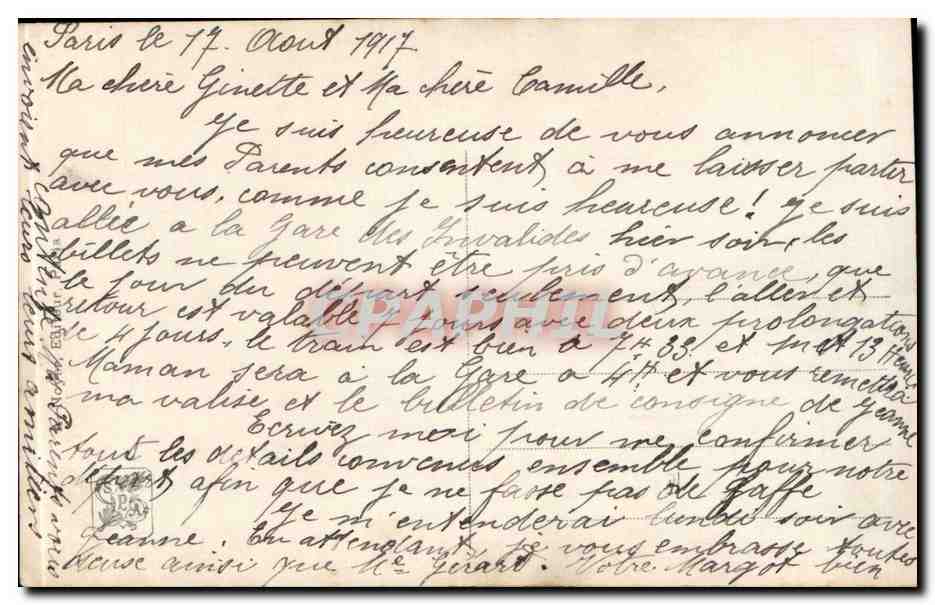 Paris le 17. Aout 1917.
Ma chère Ginette et Ma chère Camille,
Je suis heureuse de vous annoncer
que mes Parents consentent à me laisser partir
avec vous, comme je suis heureuse! Je suis
allée a la Gare des Invalides hier soir, les
billets ne peuvent être pris d'avance, que
le jour du départ seulement, l'aller et
retour est valable 7 jours avec deux prolongations
de 4 jours. le train est bien à 7H 33 et met 13 Heures
Maman sera à la Gare a 4H et vous remettra
ma valise et le bulletin de consigne de Jeanne
Ecrivez moi pour me confirmer
tous les details convenus ensemble pour notre
départ, afin que je ne fasse pas de Gaffe
Je m'entenderai lundi soir avec
Jeanne. En attendant, je vous embrasse toutes
deux ainsi que Me Gérard. Votre Margot bien
Parents vous
envoient leurs amitiés
CPAPHIL